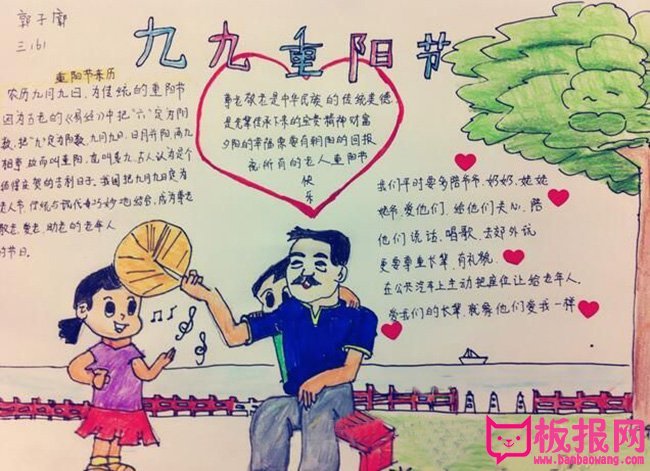 郭子廓
三(6)
九九重阳节
重阳节来历
农历九月九日,为传统的重阳节
因为古老的《易经》中把“六”定为阴
数,把“九”定为阳数,九月九日,日月并阳,两九
相重,故而叫重阳,也叫重九,古人认为是个
值得庆贺的吉利日子。我国把九月九日定为
老人节,传统与现代巧妙地结合,成为尊老
敬老、爱老、助老的老年人
的节日。
尊老敬老是中华民族的传统美德
是老辈传承下来的宝贵精神财富
夕阳的幸福需要有朝阳的回报
祝所有的老人重阳节
快
乐
我们平时要多陪爷爷、奶奶、姥姥
姥爷,爱他们,给他们关心,陪
他们说话、唱歌、去郊外玩
更要尊重长辈,有礼貌
在公共汽车上主动把座位让给老年人,
爱我们的长辈,就像他们爱我一样
板报网
www.banbaowang.com